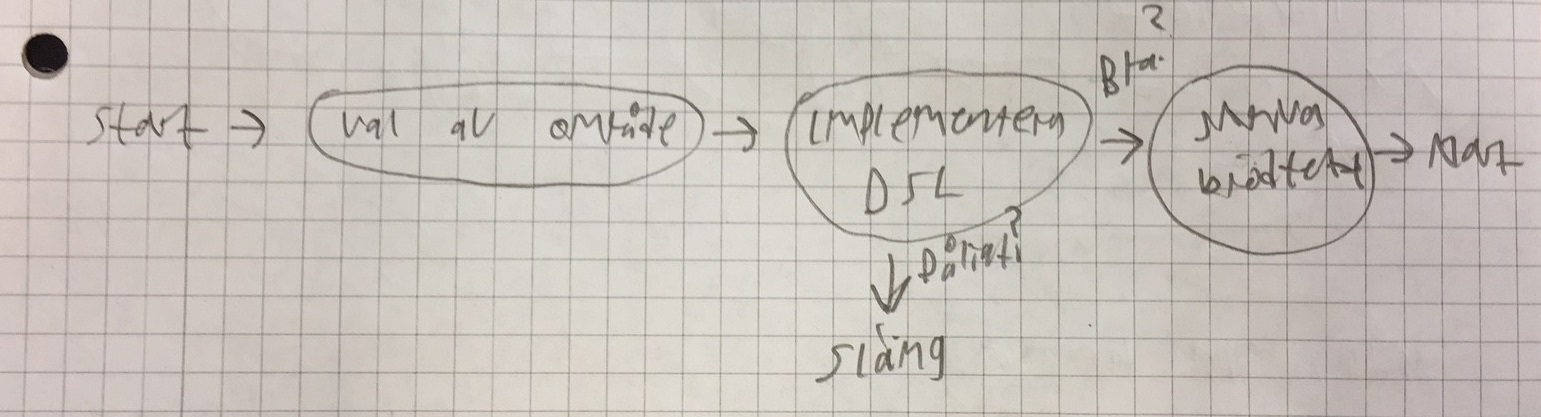 Start → val av område → Implementera
DSL
Bra?
Skriva
brödtext
→ klart
Dåligt?
Släng